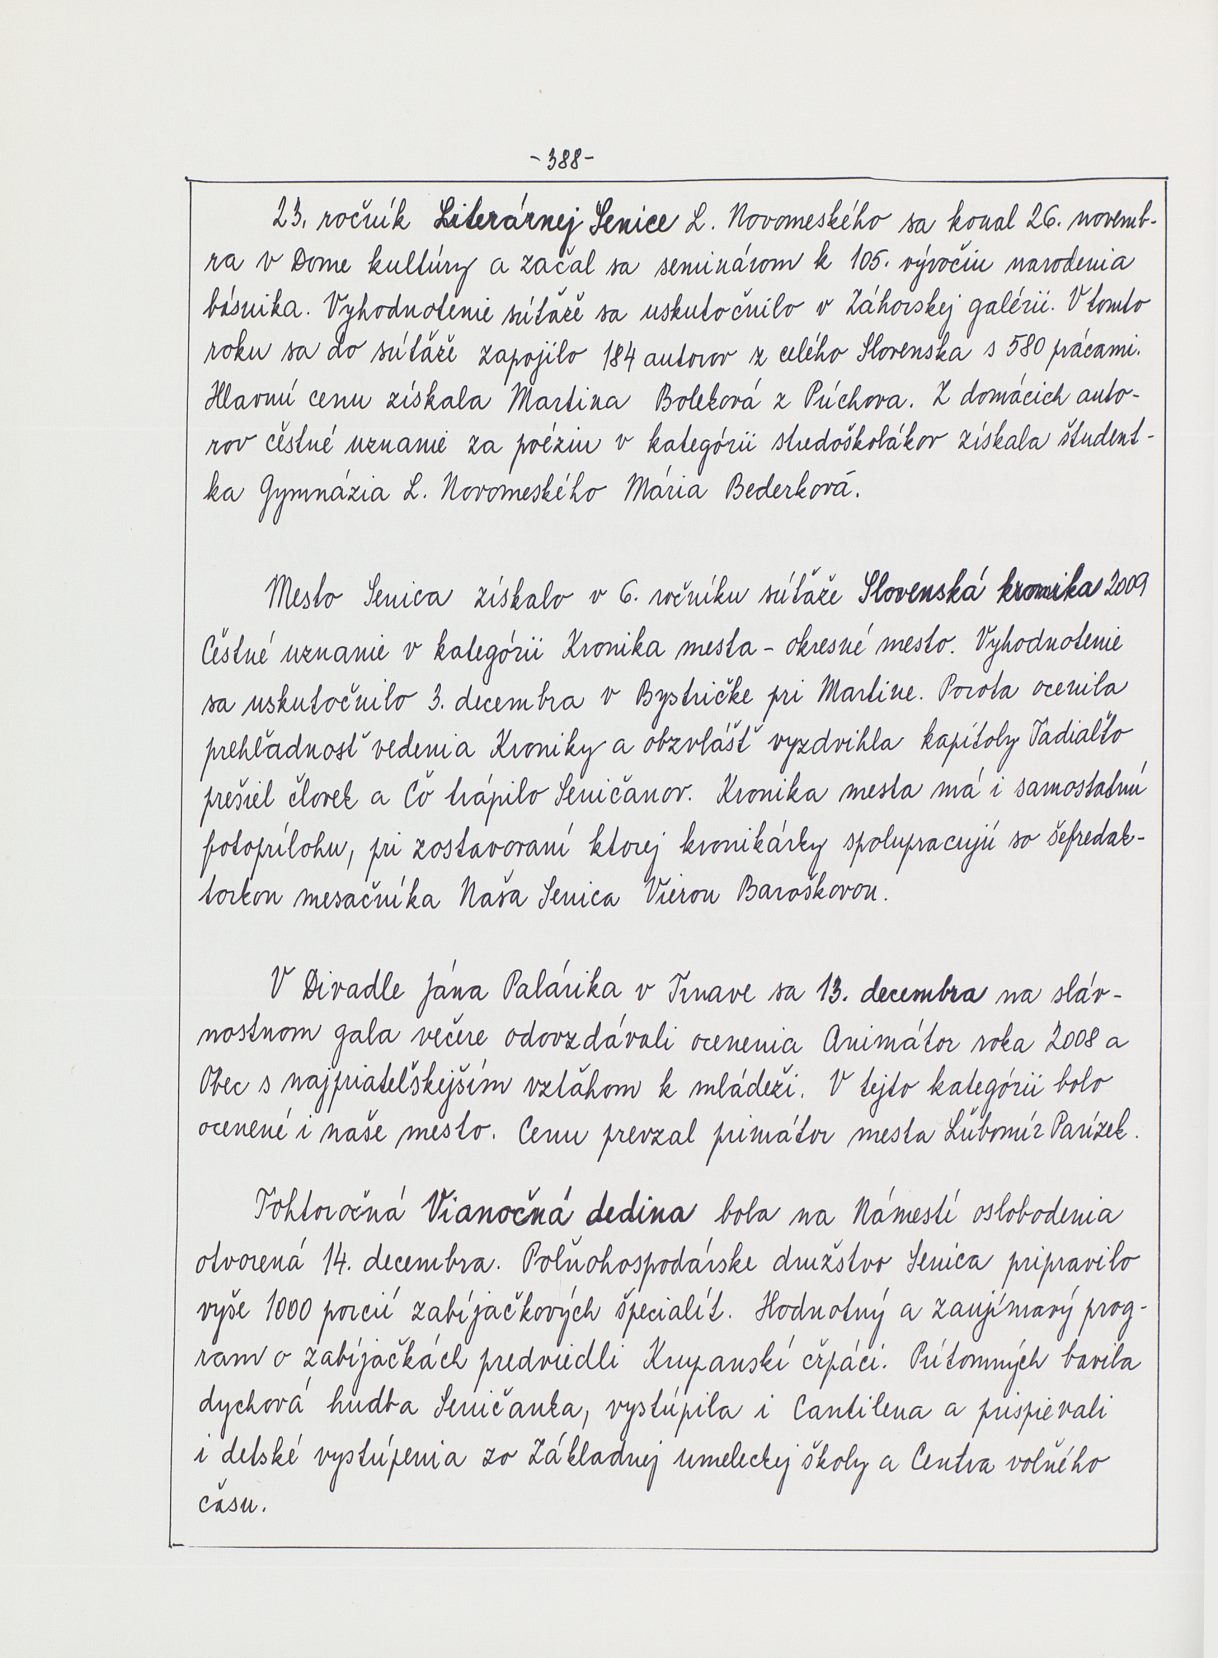 -388-
23. ročník Literárnej Senice L. Novomeského sa konal 26. novemb-
ra v Dome kultúry a začal sa seminárom k 105. výročiu narodenia
básnika. Vyhodnotenie súťaže sa uskutočnilo v Záhorskej galérii. V tomto
roku sa do súťaže zapojilo 184 autorov z celého Slovenska s 580 prácami.
Hlavnú cenu získala Martina Boleková z Púchova. Z domácich auto-
rov čestné uznanie za poéziu v kategórii stredoškolákov získala študent-
ka Gymnázia L. Novomeského Mária Bederková.
Mesto Senica získalo v 6. ročníku súťaže Slovenská kronika 2009
Čestné uznanie v kategórii Kronika mesta - okresné mesto. Vyhodnotenie
sa uskutočnilo 3. decembra v Bystričke pri Martine. Porota ocenila
prehľadnosť vedenia Kroniky a obzvlášť vyzdvihla kapitoly Tadiaľto
prešiel človek a Čo trápilo Seničanov. Kronika mesta má i samostatnú
fotoprílohu, pri zostavovaní ktorej kronikárky spolupracujú so šéfredak-
torkou mesačníka Naša Senica Vierou Barošková.
V Divadle Jána Palárika v Trnave sa 13. decembra na sláv-
nostnom gala večere odovzdávali ocenenia Animátor roka 2008 a
Obec s najpriateľskejším vzťahom k mládeži. V tejto kategórii bolo
ocenené i naše mesto. Cenu prevzal primátor mesta Ľubomír Parízek.
Tohtoročná Vianočná dedina bola na Námestí oslobodenia
otvorená 14. decembra. Poľnohospodárske družstvo Senica pripravilo
vyše 1000 porcií zabíjačkových špecialít. Hodnotný a zaujímavý prog-
ram o zabíjačkách predviedli Krupanskí čřpáci. Prítomných bavila
dychová hudba Seničanka, vystúpila i Cantilena a prispievali
i detské vystúpenia zo Základnej umeleckej školy a Centra voľného
času.